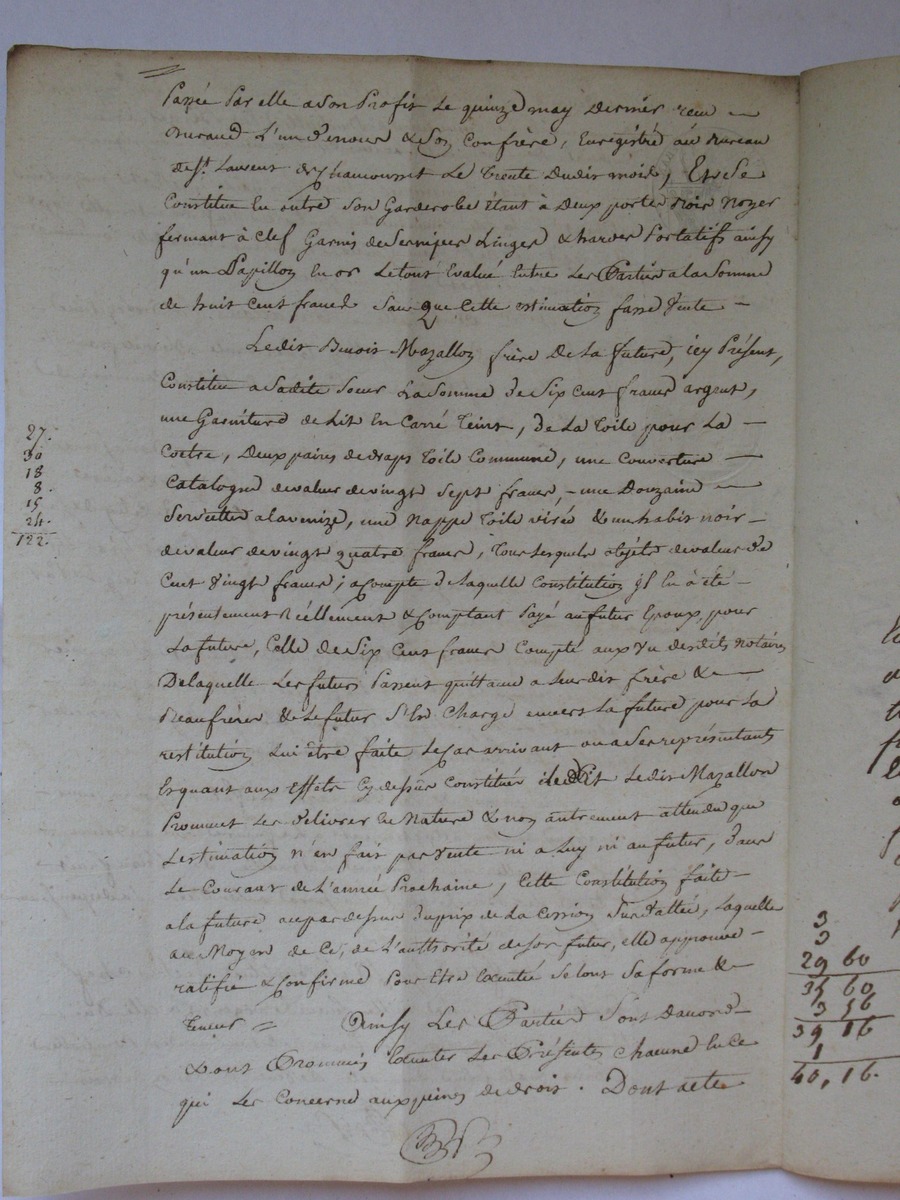 Passée Par elle a Son Profit Le quinze may Dernier receu
Durand L'un d'enous & Son Confrère, Enregistré au Bureau
de St. Laurent de Chamousset Le trente Dudit mois, Et se
Constitue En outre Son Garderobe étant à Deux portes Bois Noyer
fermant à Clef Garnis de Ses nipes Linges & hardes Portatifs ainsy
qu'un Papillon En or Le tout Evalué Entre Les Parties a la Somme
de huit Cent francs Sans que Cette estimation fasse Vente
Ledit Benoit Mazallon frère De La Future, icy Présent,
Constitue a Sadite Soeur La Somme de Six Cent francs argent,
une Garniture de Lit En Carré teint, de La toile pour La
Coetre, Deux paires de draps toile Commune, une Couverture
Catalogne de valeur de vingt Sept francs, une Douzaine
Serviettes a la venize, une Nappe toile virée & un habit noir
de valeur de vingt quatre francs, tous Lesquels objets de valeur de
Cent Vingt francs; acompte de Laquelle Constitution il En a été
présentement Réellement & Comptant Payé au futur Epoux, pour
La future, Celle de Six Cent francs Compté aux Vu desdits Notaires
De laquelle Les futurs Passent quittance a Leur dit frère &
Beaufrère & Le futur S'En Charge envers La future pour La
restitution Lui être faite Le Cas arrivant ou a Ses représentants
Et quant aux Effets Cy dessus Constitués Ledit Mazallon
Promet Les Délivrer En Nature & non autrement attendu que
L'estimation n'en fait pas Vente ni a Luy ni au futur, dans
Le Courant de L'année Prochaine, Cette Constitution faite
a la future au par dessus Du prix de La Cession Sus Datée, Laquelle
au Moyen de Ce, de L'authorité de Son futur, elle approuve
ratifie & Confirme Pour Etre Executée Selont Sa forme &
teneur = Ainsy Les Parties Sont Dacord
& ont Promis Exécuter Les Présentes Chacune En Ce
qui Les Concerne aux peines de droit. Dont acte
27.
30
18
8.
15
24.
122.
3
3
29 60
35 60
3 56
39 16
1
40, 16.